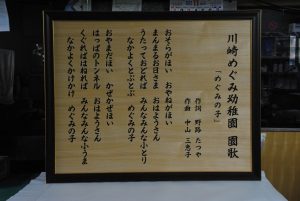 川崎めぐみ幼稚園 園歌
「めぐみの子」
作詞 野路 たつや
作曲 中山 三恵子
おそらがほい おやねがほい
まんまるお日さま おはようさん
うたっておどれば みんなみんな小とり
なかよくとぶとぶ めぐみの子
おやまだほい かぜかぜほい
はっぱのトンネル おはようさん
くぐればはねれば みんなみんな小うま
なかよくかけかけ めぐみの子